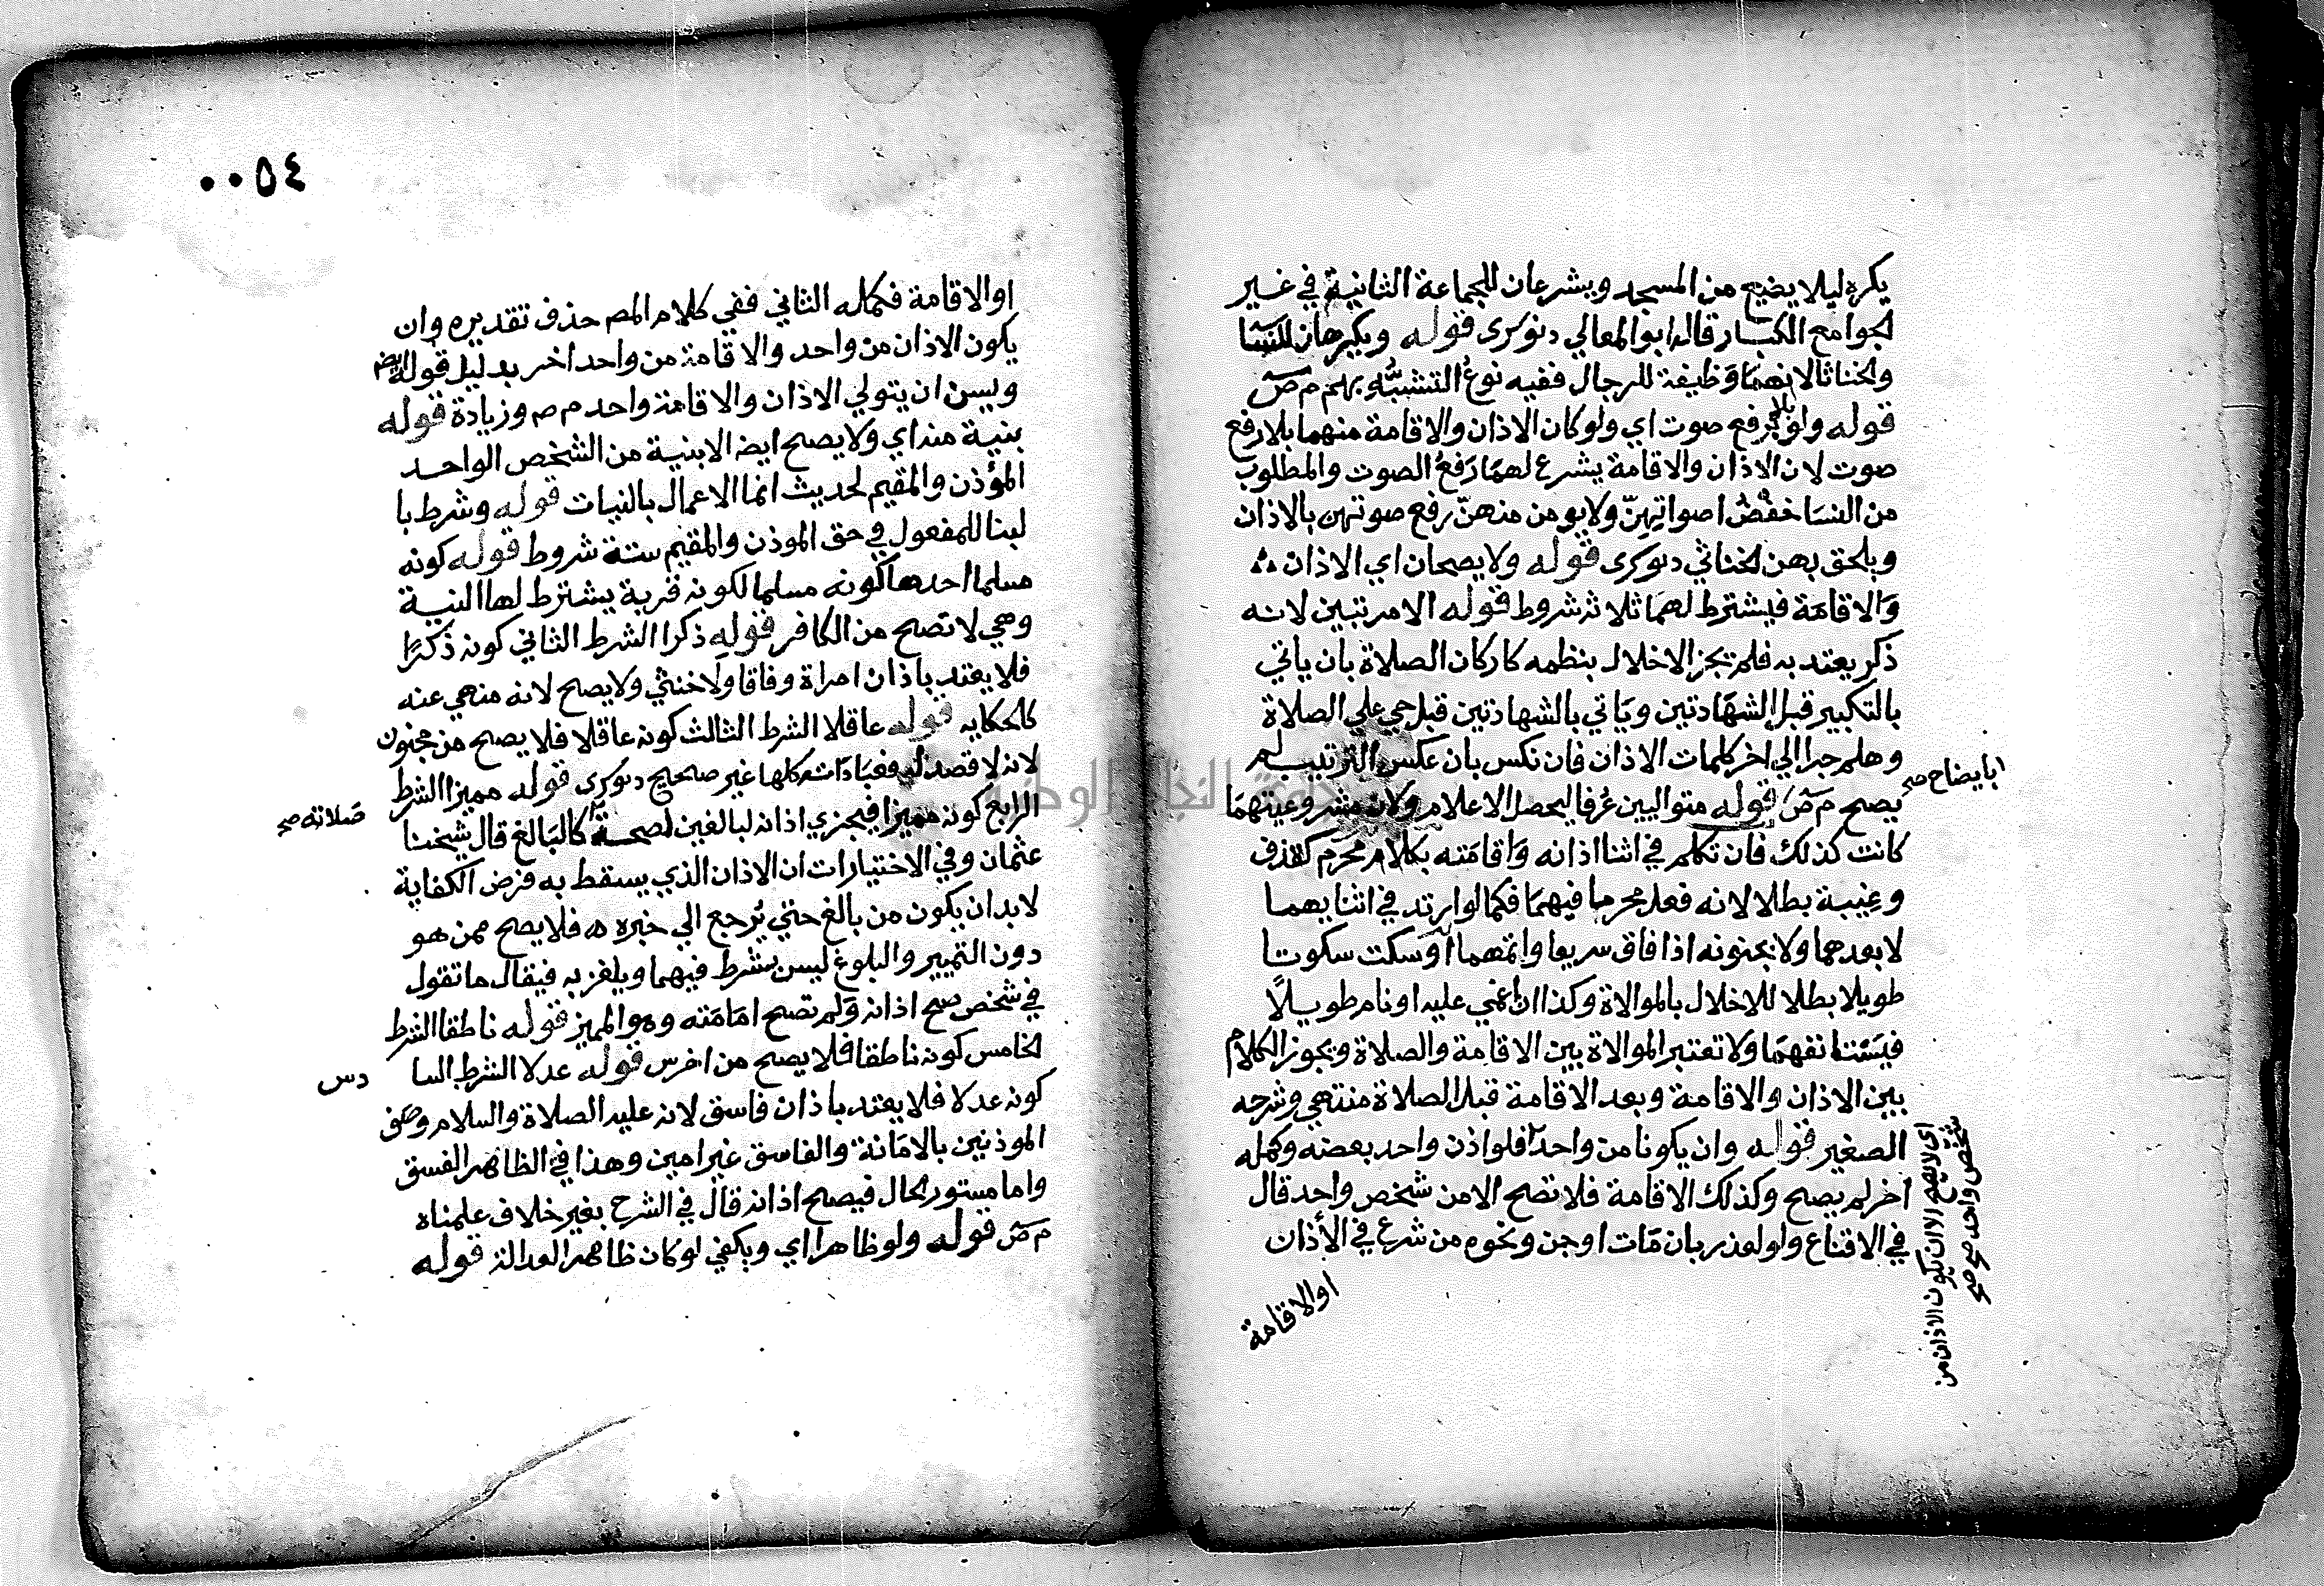 يكره ليلا يضيع من المسجد ويشرعان للجماعة الثانية في غير
الجوامع الكبار قاله ابو المعالي دنوشري قوله ويكرهان للنسا
والخناثا لانهما وظيفة للرجال ففيه نوع التشبه بهم م ص
قوله ولو بلا رفع صوت اي ولو كان الاذان والاقامة منهما بلا رفع
صوت لان الاذان والاقامة يشرع لهما رفع الصوت والمطلوب
من النسا خفض اصواتهن ولا يومن منهن رفع صوتهن بالاذان
ويلحق بهن الخناثي دنوشري قوله ولا يصحان اي الاذان
والاقامة فيشترط لهما ثلاثة شروط قوله الا مرتبين لانه
ذكر يعتد به فلم يجز الاخلال بنظمه كاركان الصلاة بان ياتي
بالتكبير قبل الشهادتين وياتي بالشهادتين قبل حي علي الصلاة
وهلم جرا الي اخر كلمات الاذان فان نكس بان عكس الترتيب لم
ا بايضاح صح
يصح م ص قوله متواليين عرفا ليحصل الاعلام ولان مشروعيتهما
كانت كذلك فان تكلم في اثنا اذانه واقامته بكلام محرم كقذف
وغيبة بطلا لانه فعل محرما فيهما فكما لو ارتد في اثنايهما
لا بعدهما ولا بجنونه اذا فاق سريعا واتمهما او سكت سكوتا
طويلا بطلا للاخلال بالموالاة وكذا ان اغمي عليه او نام طويلا
فيستانفهما ولا تعتبر الموالاة بين الاقامة والصلاة ويجوز الكلام
بين الاذان والاقامة وبعد الاقامة قبل الصلاة منتهي وشرحه
الصغير قوله وان يكونا من واحد فلو اذن واحد بعضه وكمله
اي لا يصح الا ان يكون الاذان من
شخص واحد صح صح
اخر لم يصح وكذلك الاقامة فلا تصح الا من شخص واحد قال
في الاقناع ولو لعذر بان مات او جن ونحوه من شرع في الأذان
او الاقامة
٠٠٥٤
او الاقامة فكمله الثاني ففي كلام المص حذف تقديره وان
يكون الاذان من واحد والاقامة من واحد اخر بدليل قوله ايض
ويسن ان يتولي الاذان والاقامة واحد م ص وزيادة قوله
بنية منه اي ولا يصح ايض الا بنية من الشخص الواحد
المؤذن والمقيم لحديث انما الاعمال بالنيات قوله وشرط با
لبنا للمفعول في حق الموذن والمقيم ستة شروط قوله كونه
مسلما احدها كونه مسلما لكونه قربة يشترط لها النية
وهي لا تصح من الكافر قوله ذكرا الشرط الثاني كونه ذكرًا
فلا يعتد باذان امراة وفاقا ولا خنثي ولا يصح لانه منهي عنه
كالحكايه قوله عاقلا الشرط الثالث كونه عاقلا فلا يصح من مجنون
لانه لا قصد له فعباداته كلها غير صحيح دنوشري قوله مميزا الشرط
الرابع كونه مميزا فيجزي اذانه لبالغين لصحة كالبالغ قال شيخنا
صلاته صح
عثمان وفي الاختيارات ان الاذان الذي يسقط به فرض الكفاية
لابد ان يكون من بالغ حتي يرجع الي خبره ه فلا يصح ممن هو
دون التمييز والبلوغ ليس بشرط فيهما ويلغز به فيقال ما تقول
في شخص صح اذانه ولم تصح امامته وهو المميز قوله ناطقا الشرط
الخامس كونه ناطقا فلا يصح من اخرس قوله عدلا الشرط السا
دس
كونه عدلا فلا يعتد باذان فاسق لانه عليه الصلاة والسلام وصف
الموذنين بالامانة والفاسق غير امين وهذا في الظاهر الفسق
واما مستور الحال فيصح اذانه قال في الشرح بغير خلاف علمناه
م ص قوله ولو ظاهرا اي ويكفي لو كان ظاهر العدالة قوله